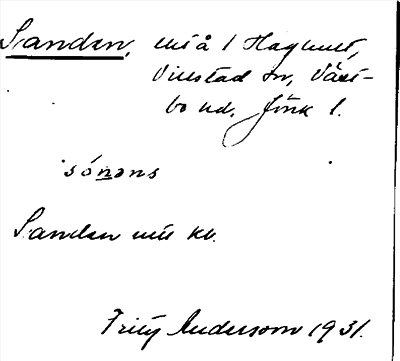 Sanden, utså i Haghult,
Villstad sn, Väst-
bo hd. Jönk l.
sónəns
Sanden utse kv.
Fritz Andersson 1931.